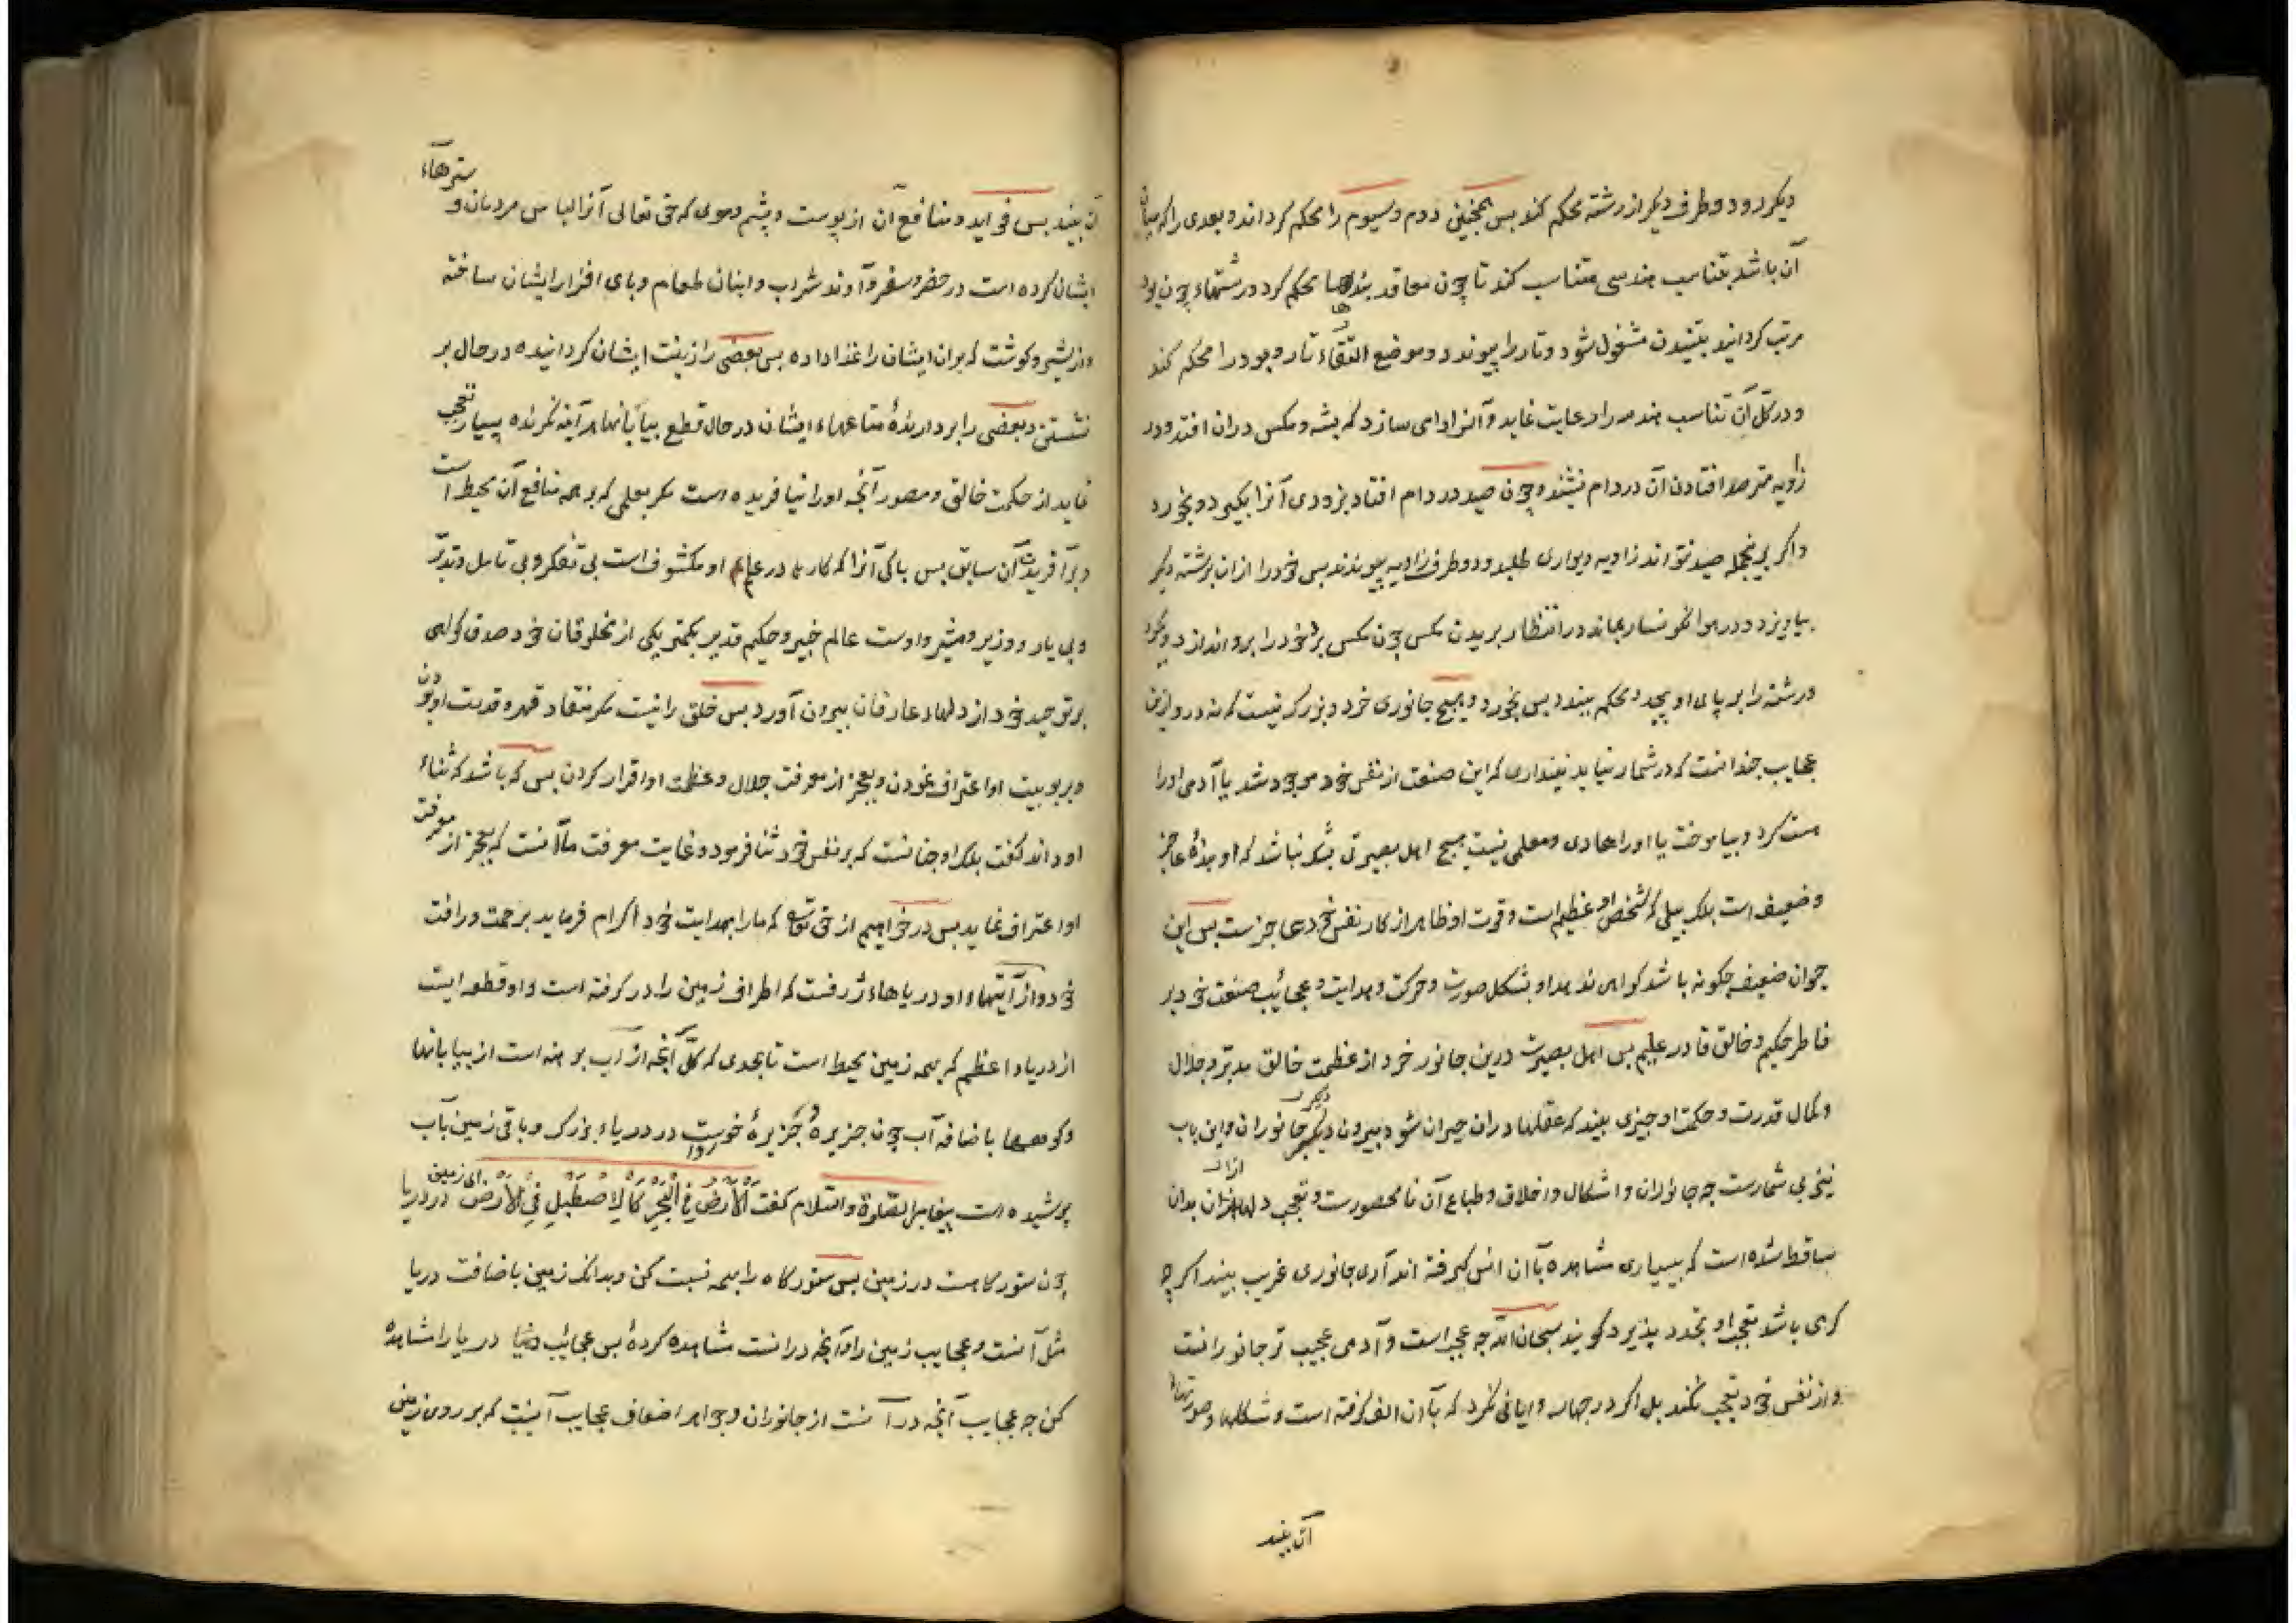 دیکر رود و طرف دیکر از رشته محکم کند بس همجنین دوم و سیوم را محکم کرداند و بعدی را که میان
آن باشد بتناسب هندسی متناسب کند تا چون معاقد بندها محکم کرد و رشتهاء چون پود
مرتب کردانید بتنیدن مشغول شود و تار را پیوندد و موضع التقاء تار و پود را محکم کند
و در کل آن تناسب هندسه را رعایت نماید و آنرا دامی سازد که پشه و مکس دران افتد و در
زاویه مترصد افتادن آن در دام نیشند و چون صید در دام افتاد بزودی آنرا بکیرد و بخورد
و اکر برینجمله صید نتواند زاویه دیواری طلبد و دو طرف زاویه بپیوندد بس خود را ازان برشته دیکر
بیاویزد و در هوا نکونسار بماند در انتظار بریدن مکس چون مکس برد خود را برو اندازد و بکیرد
و رشته را بر پای او پیچد و محکم ببندد بس بخورد و هیچ جانوری خرد و بزرک نیست که نه درو ازین
عجایب جندانست که در شمار نیاید نپنداری که این صنعت از نفس خود موجود شد یا آدمی او را
هست کرد و بیاموخت یا او را هادی و معلمی نیست هیچ اهل بصیرتی بشک نباشد که او بندۀ عاجز
و ضعیف است بلکه پیلی که شخص او عظیم است و قوت او ظاهر از کار نفس خود عاجزست بس این
حیوان ضعیف جکونه باشد کواهی ندهد او بشکل صورت و حرکت و هدایت و عجائب صنعت خود بر
فاطر حکیم و خالق قادر علیم بس اهل بصیرت درین جانور خرد از عظمت خالق مدبر و جلال
و کمال قدرت و حکمت او جیزی بیند که عقلها دران حیران شود بیرون دیکر جانوران و این باب
نیز بی شمارست جه جانوران و اشکال و اخلاق و طباع آن نا محصورست و تعجب دلها ازان بدان
ساقط شده است که ببسیاری مشاهده با آن انس کرفته اند آری جانوری غریب بیند اکر چه
کرمی باشد تعجب او تجدد پذیرد و کویند سبحان الله جه عجب است و آدمی عجیب تر جانورانست
و از نفس خود تعجب نکند بل اکر در جهار پایانی نکرد که با آن الف کرفته است و شکلها و صورتهاء
آن بیند
آن بیند بس فواید و منافع آن از پوست و پشم و موی که حق تعالی آنرا لباس مردمان و سترهاء
ایشان کرده است در حضر و سفر و آوند شراب و انبان طعام و پای افزار ایشان ساخته
و از شیر و کوشت که بران ایشان را غذا داده بس بعضی را زینت ایشان کردانیده در حال بر
نشستن و بعضی را بر دارندۀ متاعهاء ایشان در حال قطع بیابانها هر آینه نکرنده بسیار تعجب
نماید از حکمت خالق و مصور آنجه او را نیافریده است مکر بعلمی که بر همه منافع آن محیط است
و بر آفریدن آن سابق بس پاکی آنرا که کارها در علم او مکشوف است بی تفکر و بی تامل و تدبر
و بی یار و وزیر و مشیر و اوست عالم خبیر و حکیم قدیر بکمتر یکی از مخلوقان خود صدق کواهی
بر توحید خود از دلهاء عارفان بیرون آورد بس خلق را نیست مکر منقاد قهر و قدرت او بودن
و بربوبیت او اعتراف نمودن و بعجز از معرفت جلال و عظمت او اقرار کردن بس که باشد که ثناء
او داند کفت بلکه او جنانست که بر نفس خود ثنا فرمود و غایت معرفت ما آنست که بعجز از معرفت
او اعتراف نماید بس در خواهیم از حق تع که ما را بهدایت خود اکرام فرماید برحمت و رافت
خود و از آیتهاء او دریاهاء ژرفست که اطراف زمین را در کرفته است و او قطعه ایست
از دریاء اعظم که بهمه زمین محیط است تا بحدی که کل آنجه از آب برهنه است از بیابانها
و کوهها باضافه آب چون جزیرۀ خردست در دریاء بزرک و باقی زمین بآب
پوشیده است پیغامبر علیه الصلوة والسلام کفت الارض فی البحر کالاصطبل فی الارض ای زمین در دریا
چون ستورکاهست در زمین بس ستورکاه را بهمه نسبت کن و بدانک زمین باضافت دریا
مثل آنست و عجایب زمین را و آنچه درانست مشاهده کردۀ بس عجائب دریا را مشاهدۀ
کن جه عجایب آنچه در آنست از جانوران و جواهر اضعاف عجایب آنست که بر روی زمین